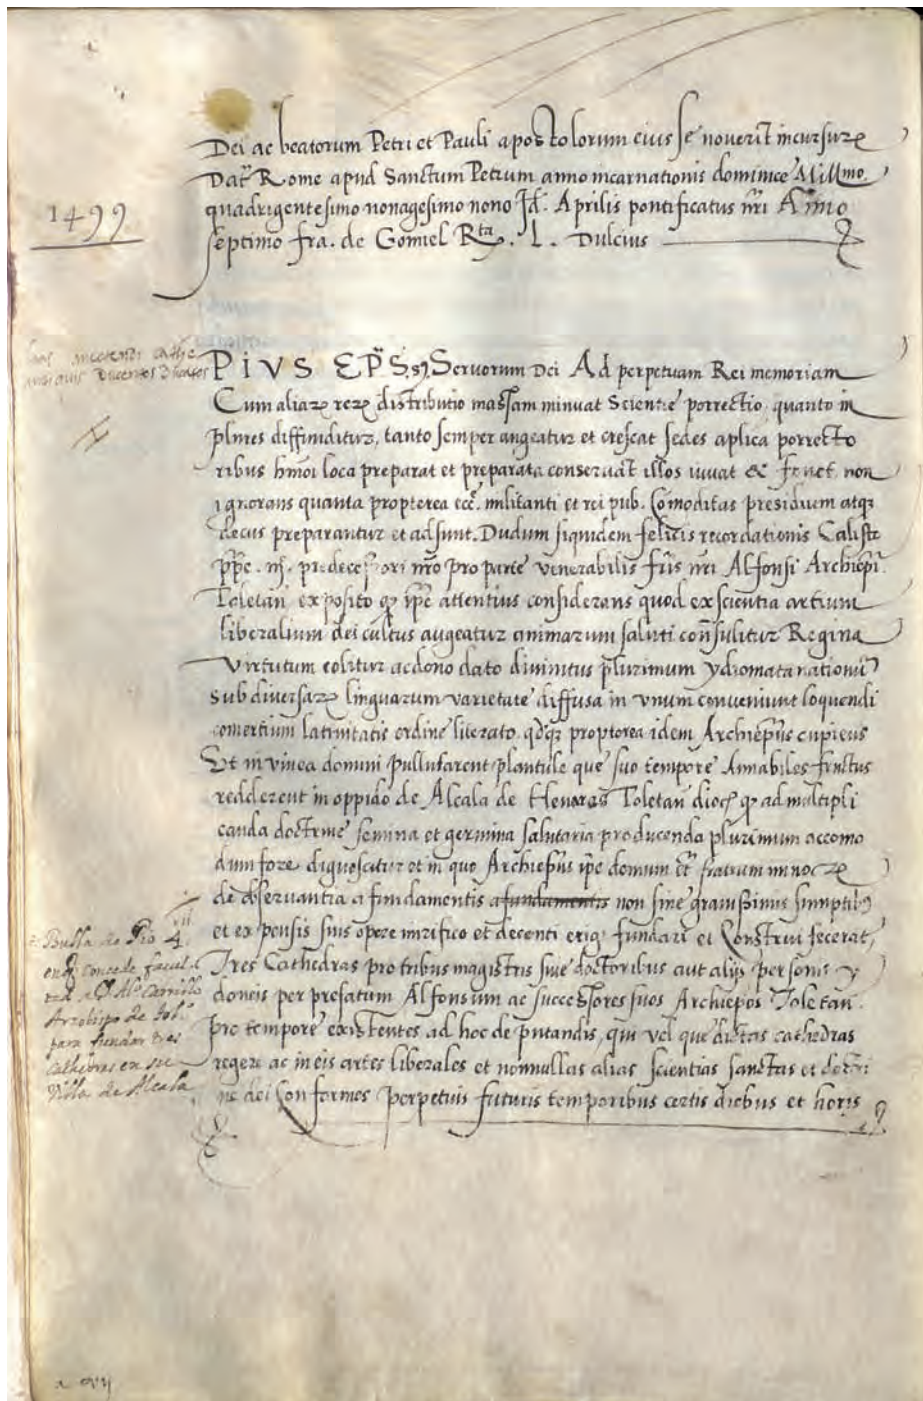 Dei ac beatorum Petri et Pauli apostolorum eius se noverit incursurꝝ
Dat̃ Rome apud Sanctum Petrum anno incarnationis dominice Mill.mo
1499
quadrigentesimo nonagesimo nono Id. Aprilis pontificatus nr̃i Anno
septimo fra. de Gomiel Rta. L. Dulcius
PIVS EP̃S, s, Servorum Dei Ad perpetuam Rei memoriam
Cum aliaꝝ reꝝ distributio massam minuat Scientie porrectio quanto in
plures diffunditur, tanto semper augeatur et crescat sedes aplica porrecto
ribus hmõi loca preparat et preparata conservat illos iuvat & fovet non
ignorans quanta propterea ecc̃. militanti et rei pub. Cõmoditas presidium atqꝫ
decus preparantur et adsunt. Dudum siquidem felicis recordationis Calisto
pp̃e. iij. predecessori nr̃o pro parte venerabilis fr̃is nr̃i Alfonsi Archiep̃i
Toletani exposito qꝫ ip̃e attentius considerans quod ex scientia artium
liberalium dei cultus augeatur animarum saluti cons̃ulitur Regina
Virtutum colitur ac dono dato divinitus plurimum ydiomata nationũ
sub diversaꝝ linguarum varietate diffusa in vnum conveniunt loquendi
comertium latinitatis ordine liberato qdqꝫ propterea idem Archiep̃us cupiens
Ut in vinea domini pullularent plantule que suo tempore Amabiles fructus
redderent in oppido de Alcala de Henares Toletan dioc̃ qꝫ ad multipli
canda doctrine semina et germina salutaria producenda plurimum accomo
dum fore dignoscitur et in quo Archiep̃us ip̃e domum et̃ fratrum minoꝝ
de observantia a fundamentis a fundamentis non sine gravissimis sumptibꝫ
et expensis suis opere mirifico et decenti erigi fundari et Construi fecerat,
Tres Cathedras pro tribus magistris sive doctoribus aut alijs personis y
doneis per prefatum Alfonsum ac successores suos Archiepos Toletan.
pro tempore existentes ad hoc deputandis, qui vel que dictas cathedras
regere ac in eis artes liberales et nonnullas alias scientias sanctas et doctri
ne dei Conformes perpetuis futuris temporibus certis diebus et horis
Bulla de Pio
en q concede facul
tad a Alo Carrillo
Arzobispo de tol.
para fundar tres
Cathedras en su
Villa de Alcala